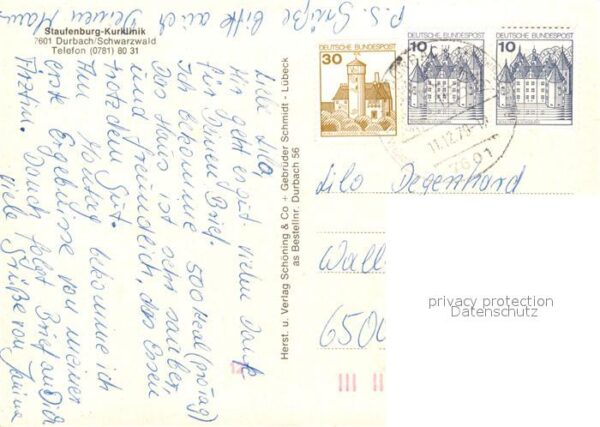 Staufenburg-Kurklinik
7601 Durbach/Schwarzwald
Telefon (0781) 80 31
P.S. Grüße bitte auch Deinen Mann
Liebe Lilo,
Ihr geht es gut. Vielen Dank
für Deinen Brief.
Ich bekomme 500 kcal (pro Tag)
Das Haus ist sehr sauber
und freundlich, das Essen
trotzdem gut.
Am Montag bekomme ich
erste Ergebnisse von meiner
Ärztin. Danach folgt Brief an Dich
viele Grüße von
Herst. u. Verlag Schöning & Co + Gebrüder Schmidt - Lübeck
as Bestellnr. Durbach 56
30
DEUTSCHE BUNDESPOST
10
DEUTSCHE BUNDESPOST
10
DEUTSCHE BUNDESPOST
11.12.79
7601
Lilo Degenhard
Wall
6500
privacy protection
Datenschutz